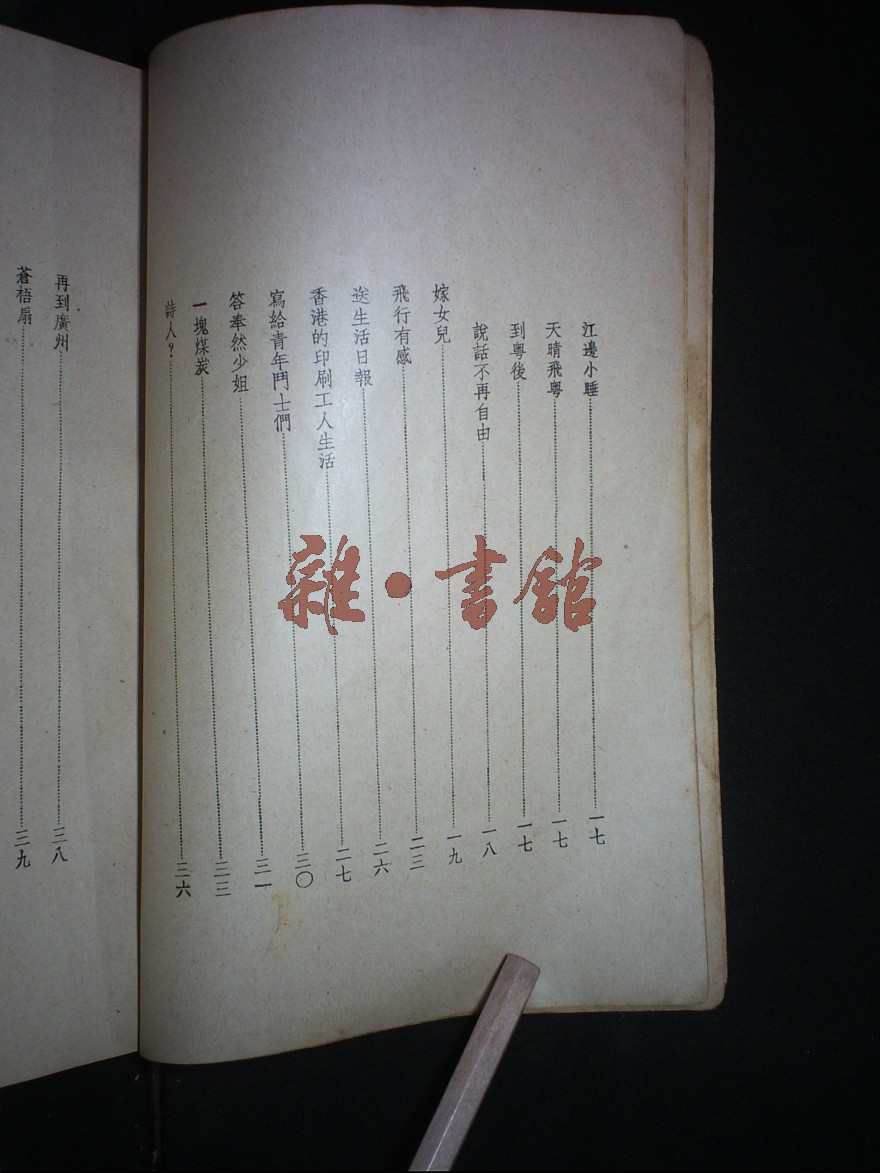 江邊小睡……一七
天晴飛粤……一七
到粤後……一七
說話不再自由……一八
嫁女兒……一九
飛行有感……二三
送生活日報……二六
香港的印刷工人生活……二七
寫給青年鬥士們……三〇
答奉然少姐……三一
一塊煤炭……三三
詩人？……三六
再到廣州……三八
蒼梧扇……三九
雜·書館